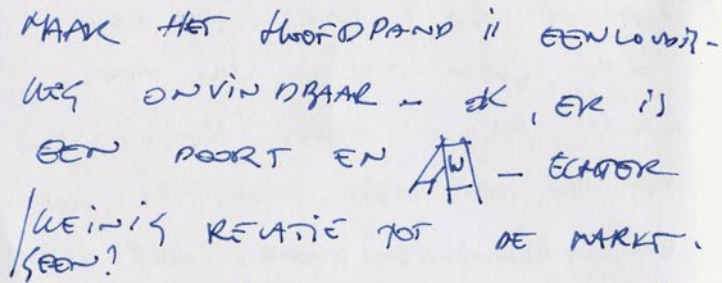 MAAR HET HOOFDPAND is EENVOUDIG-
WEG ONVINDBAAR - OK, ER is
EEN POORT EN AW - ECHTER
/WEINIG RELATIE TOT DE MARKT.
GEEN?